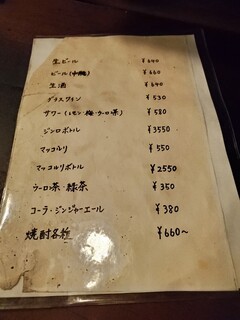 生ビール ¥640
ビール(中瓶) ¥660
生酒 ¥640
グラスワイン ¥530
サワー(レモン・梅・ウーロ茶) ¥580
ジンロボトル ¥3550
マッコルリ ¥550
マッコルリボトル ¥2550
ウーロ茶・緑茶 ¥350
コーラ・ジンジャーエール ¥380
焼酎各種 ¥660~